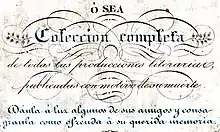 Ó SEA
Coleccion completa
de todas las producciones literarias,
publicadas con motivo de su muerte.
Dánla á luz algunos de sus amigos y consa-
granla como ofrenda á su querida memoria.